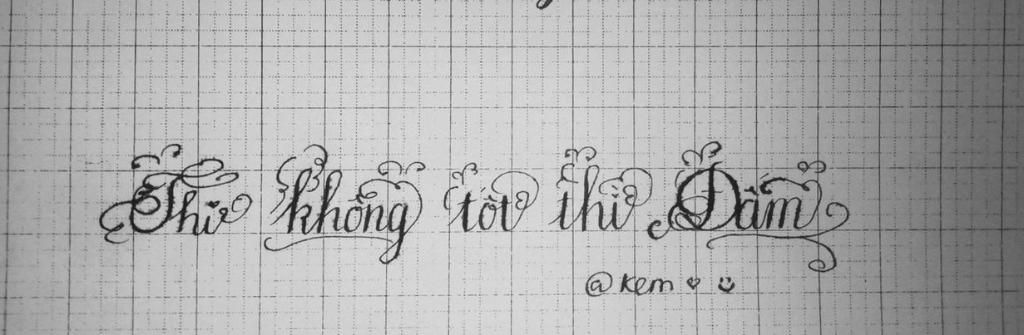 Thi không tốt thì Dấm
@kem